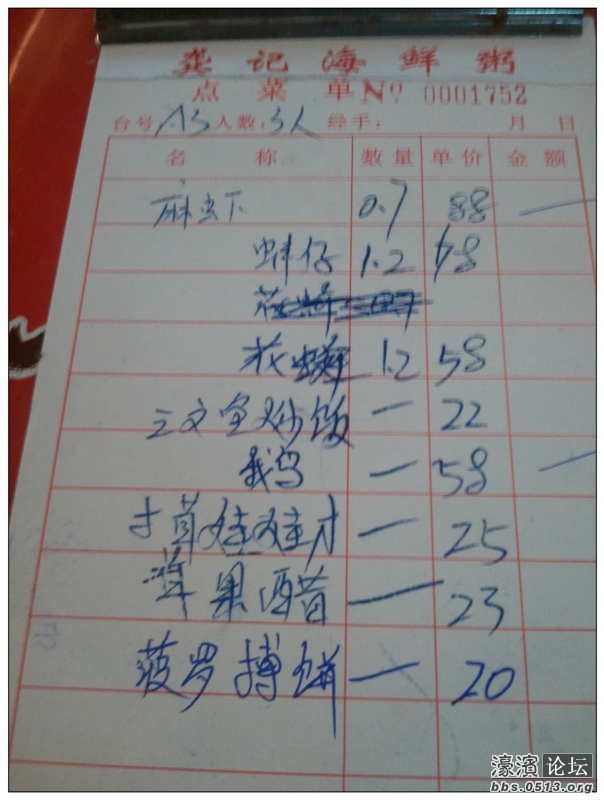 龚记海鲜粥
点菜单 No 0001752
台号 A3 人数: 3人 经手: 月 日
名 称 数量 单价 金额
麻虾 0.7 88 —
蚌仔 1.2 68
花 1.2 58
三文鱼炒饭 一 22
一 58 —
娃娃才 一 25
苹果醋 一 23
菠罗搏饼 一 20
濠滨论坛
bbs.0513.org